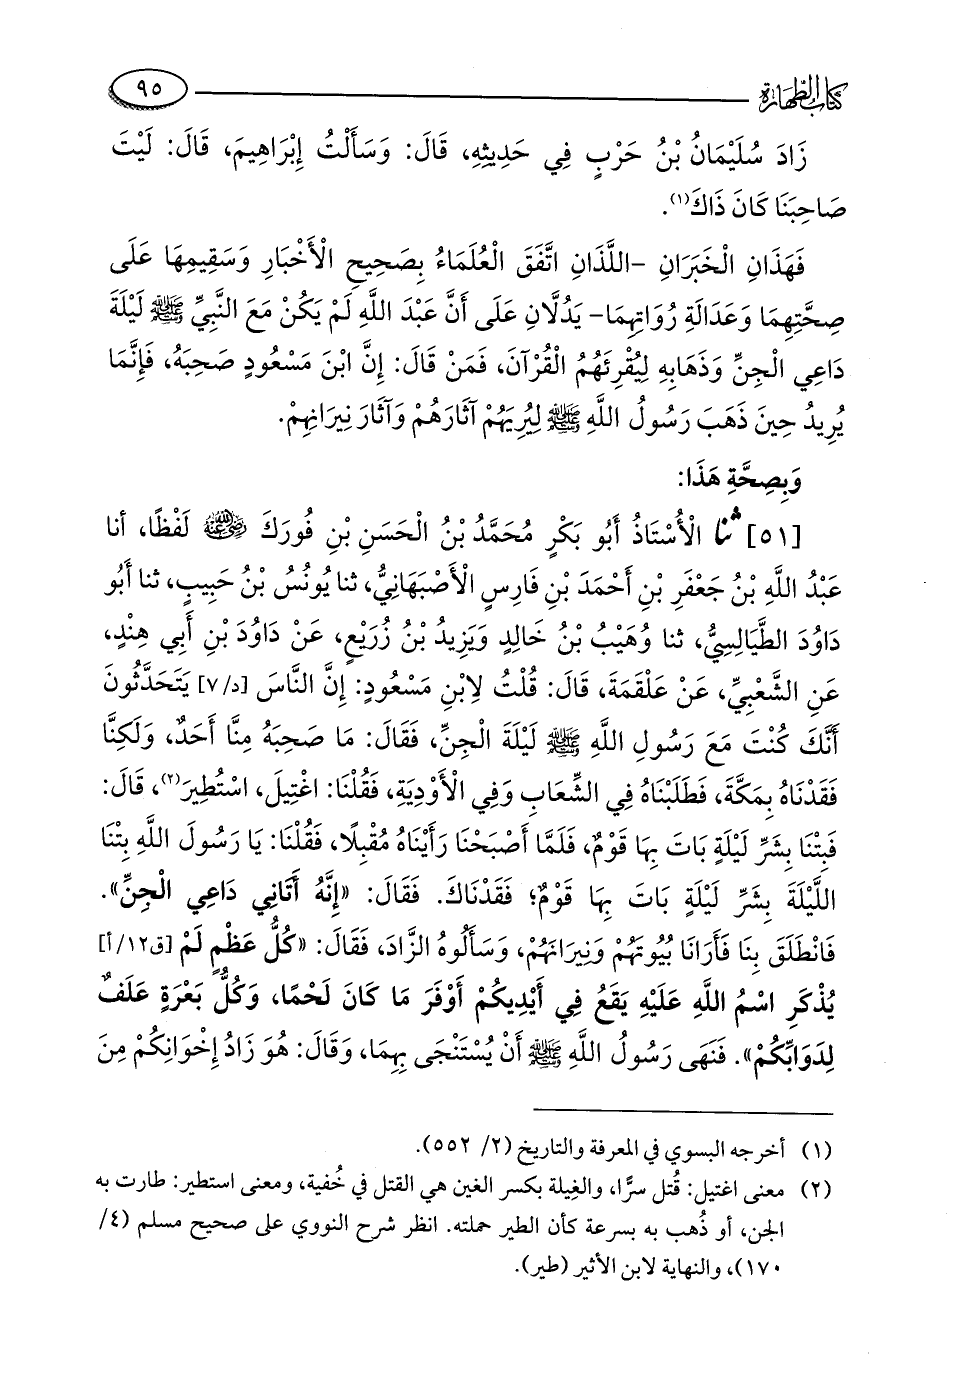 كتاب الطهارة ٩٥
زَادَ سُلَيْمَانُ بْنُ حَرْبٍ فِي حَدِيثِهِ، قَالَ: وَسَأَلْتُ إِبْرَاهِيمَ، قَالَ: لَيْتَ
صَاحِبَنَا كَانَ ذَاكَ(١).
فَهَذَانِ الْخَبَرَانِ -اللَّذَانِ اتَّفَقَ الْعُلَمَاءُ بِصَحِيحِ الْأَخْبَارِ وَسَقِيمِهَا عَلَى
صِحَّتِهِمَا وَعَدَالَةِ رُوَاتِهِمَا- يَدُلَّانِ عَلَى أَنَّ عَبْدَ اللَّهِ لَمْ يَكُنْ مَعَ النَّبِيِّ ﷺ لَيْلَةَ
دَاعِي الْجِنِّ وَذَهَابِهِ لِيُقْرِئَهُمُ الْقُرْآنَ، فَمَنْ قَالَ: إِنَّ ابْنَ مَسْعُودٍ صَحِبَهُ، فَإِنَّمَا
يُرِيدُ حِينَ ذَهَبَ رَسُولُ اللَّهِ ﷺ لِيُرِيَهُمْ آثَارَهُمْ وَآثَارَ نِيرَانِهِمْ.
وَبِصِحَّةِ هَذَا:
[٥١] ثنا الْأُسْتَاذُ أَبُو بَكْرٍ مُحَمَّدُ بْنُ الْحَسَنِ بْنِ فُورَكَ رضي الله عنه لَفْظًا، أنا
عَبْدُ اللَّهِ بْنُ جَعْفَرِ بْنِ أَحْمَدَ بْنِ فَارِسٍ الْأَصْبَهَانِيُّ، ثنا يُونُسُ بْنُ حَبِيبٍ، ثنا أَبُو
دَاوُدَ الطَّيَالِسِيُّ، ثنا وُهَيْبُ بْنُ خَالِدٍ وَيَزِيدُ بْنُ زُرَيْعٍ، عَنْ دَاوُدَ بْنِ أَبِي هِنْدٍ،
عَنِ الشَّعْبِيِّ، عَنْ عَلْقَمَةَ، قَالَ: قُلْتُ لِابْنِ مَسْعُودٍ: إِنَّ النَّاسَ [د/٧] يَتَحَدَّثُونَ
أَنَّكَ كُنْتَ مَعَ رَسُولِ اللَّهِ ﷺ لَيْلَةَ الْجِنِّ، فَقَالَ: مَا صَحِبَهُ مِنَّا أَحَدٌ، وَلَكِنَّا
فَقَدْنَاهُ بِمَكَّةَ، فَطَلَبْنَاهُ فِي الشِّعَابِ وَفِي الْأَوْدِيَةِ، فَقُلْنَا: اغْتِيلَ، اسْتُطِيرَ(٢)، قَالَ:
فَبِتْنَا بِشَرِّ لَيْلَةٍ بَاتَ بِهَا قَوْمٌ، فَلَمَّا أَصْبَحْنَا رَأَيْنَاهُ مُقْبِلًا، فَقُلْنَا: يَا رَسُولَ اللَّهِ بِتْنَا
اللَّيْلَةَ بِشَرِّ لَيْلَةٍ بَاتَ بِهَا قَوْمٌ؛ فَقَدْنَاكَ. فَقَالَ: «إِنَّهُ أَتَانِي دَاعِي الْجِنِّ».
فَانْطَلَقَ بِنَا فَأَرَانَا بُيُوتَهُمْ وَنِيرَانَهُمْ، وَسَأَلُوهُ الزَّادَ، فَقَالَ: «كُلُّ عَظْمٍ لَمْ [ق١٢/أ]
يُذْكَرِ اسْمُ اللَّهِ عَلَيْهِ يَقَعُ فِي أَيْدِيكُمْ أَوْفَرَ مَا كَانَ لَحْمًا، وَكُلُّ بَعْرَةٍ عَلَفٌ
لِدَوَابِّكُمْ». فَنَهَى رَسُولُ اللَّهِ ﷺ أَنْ يُسْتَنْجَى بِهِمَا، وَقَالَ: هُوَ زَادُ إِخْوَانِكُمْ مِنَ
(١) أخرجه البسوي في المعرفة والتاريخ (٢/ ٥٥٢).
(٢) معنى اغتيل: قُتل سرًّا، والغِيلة بكسر الغين هي القتل في خُفية، ومعنى استطير: طارت به
الجن، أو ذُهب به بسرعة كأن الطير حملته. انظر شرح النووي على صحيح مسلم (٤/
١٧٠)، والنهاية لابن الأثير (طير).